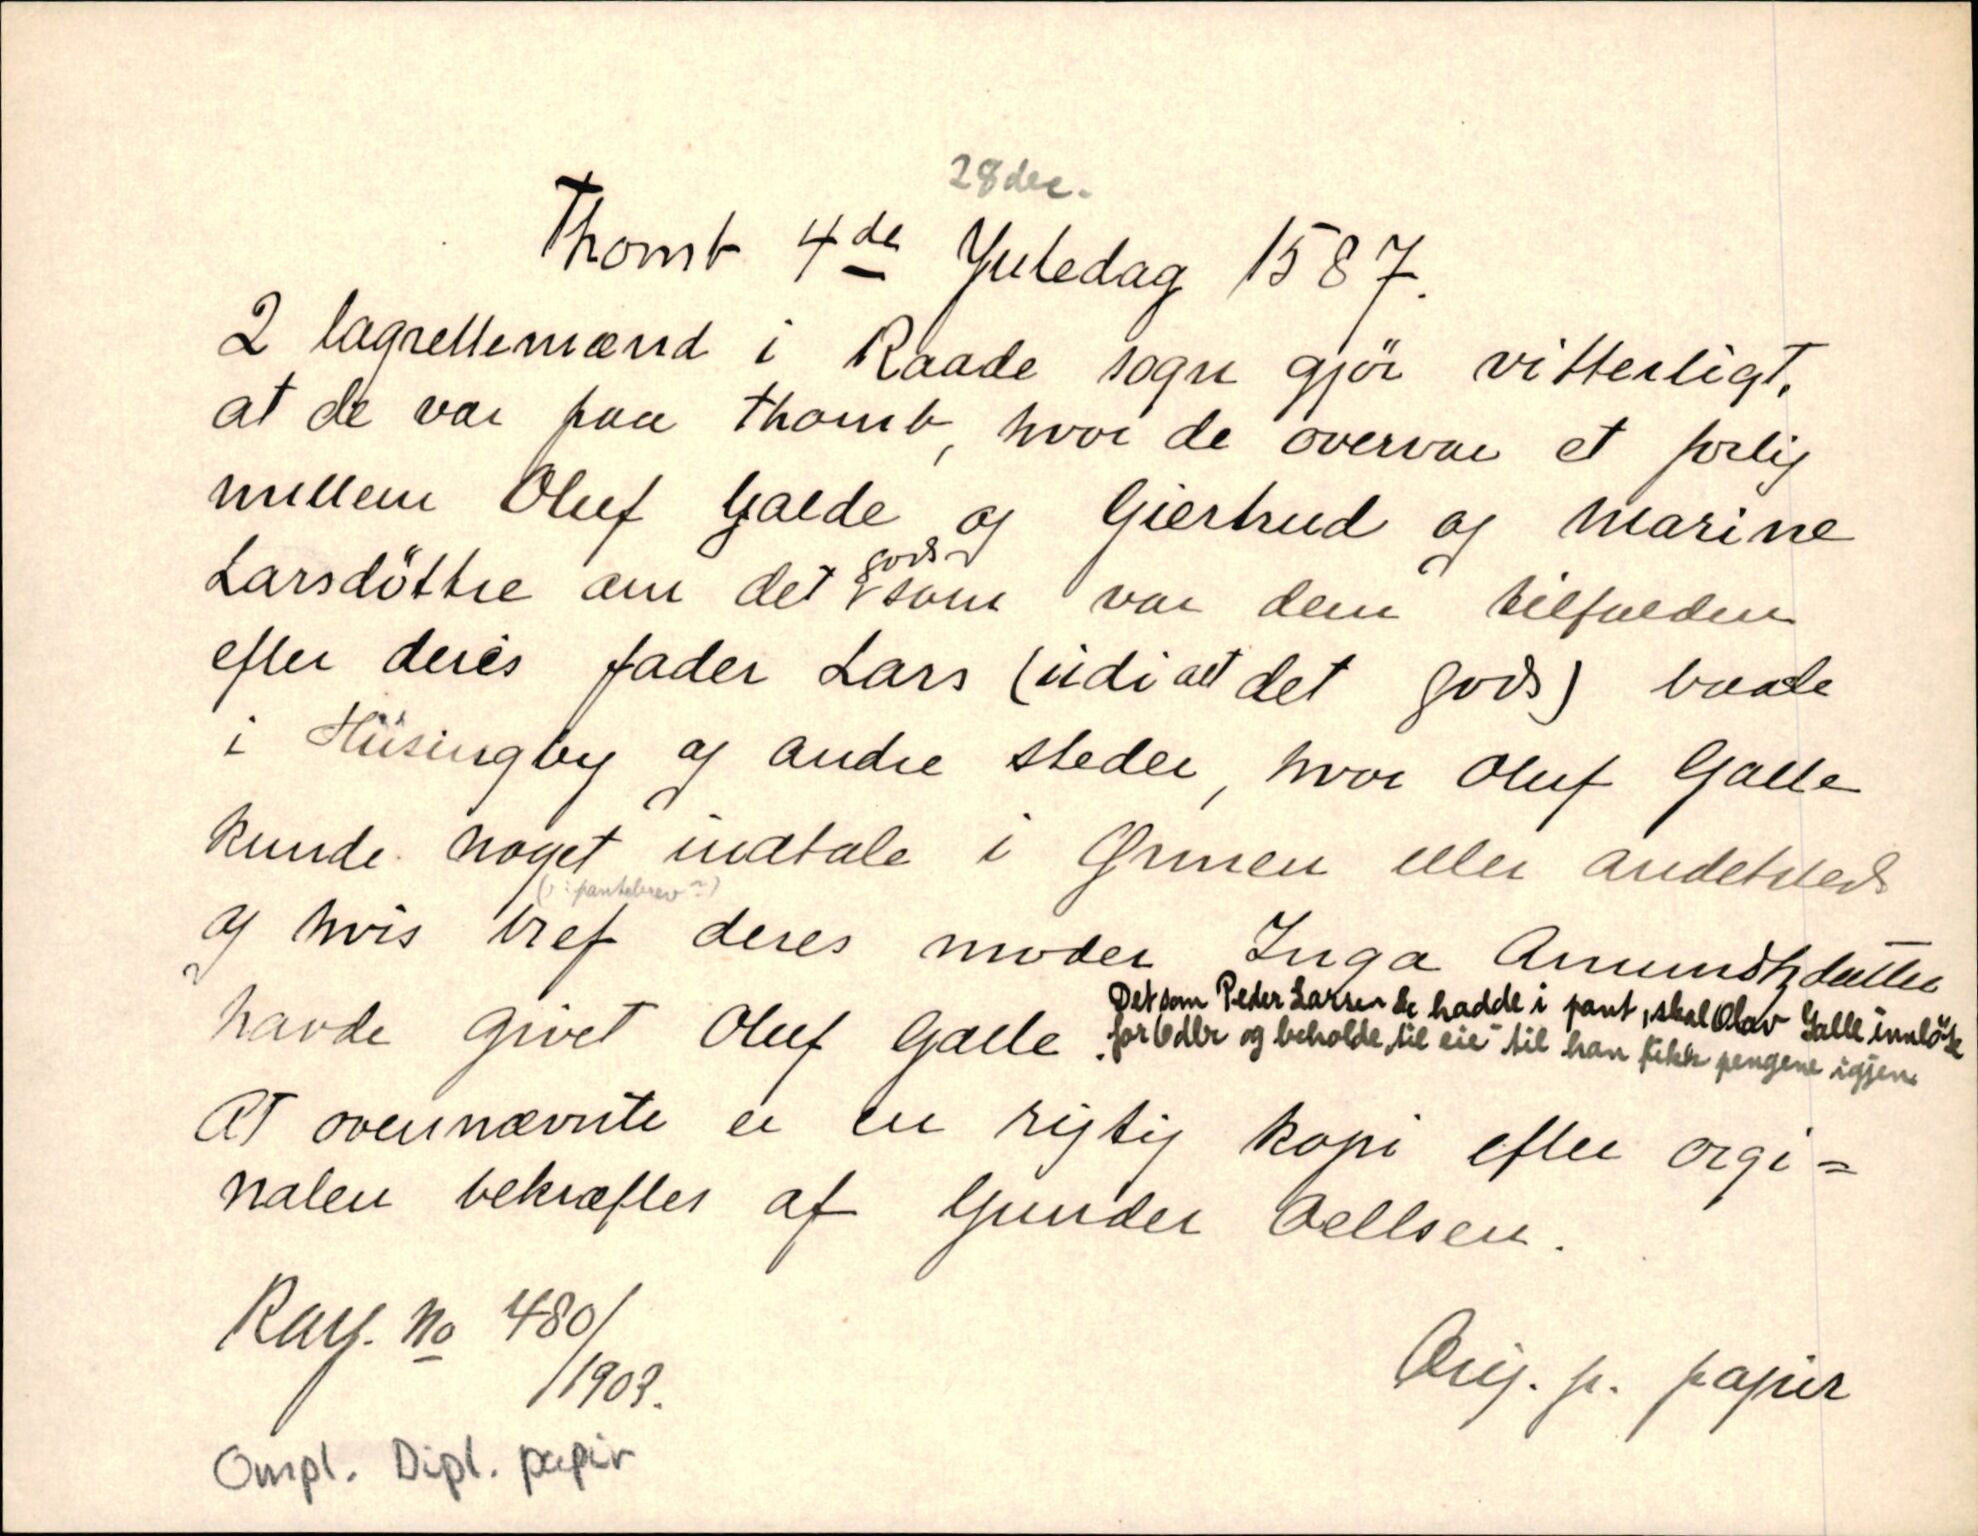 28 dec.
Thomb 4de Juledag 1587.
2 lagrettemænd i Raade sogn gjör vitterligt,
at de var paa Thomb, hvor de overvar et forlig
mellem Oluf Galde og Giertrud og Marine
Larsdöttre om det gods som var dem tilfalden
efter deres fader Lars (udi alt det gods) baade
i Hüsingby og andre steder, hvor Oluf Galle
kunde noget indtale i Grimen eller andetsteds
(ɔ: pantebrev?)
og hvis bref deres moder Inga Amundtzdatter
havde givet Oluf Galle.
Det som Peder Larssen de hadde i pant, skal Olav Galle innlöse
for 6 dlr og beholde „til eie“ til han fikk pengene igjen.
At ovennævnte er en rigtig kopi efter orgi=
nalen bekræftes af Gunder Oellsen.
Kay. No 480/1903.
Orig. p. papir
Ompl. Dipl. papir